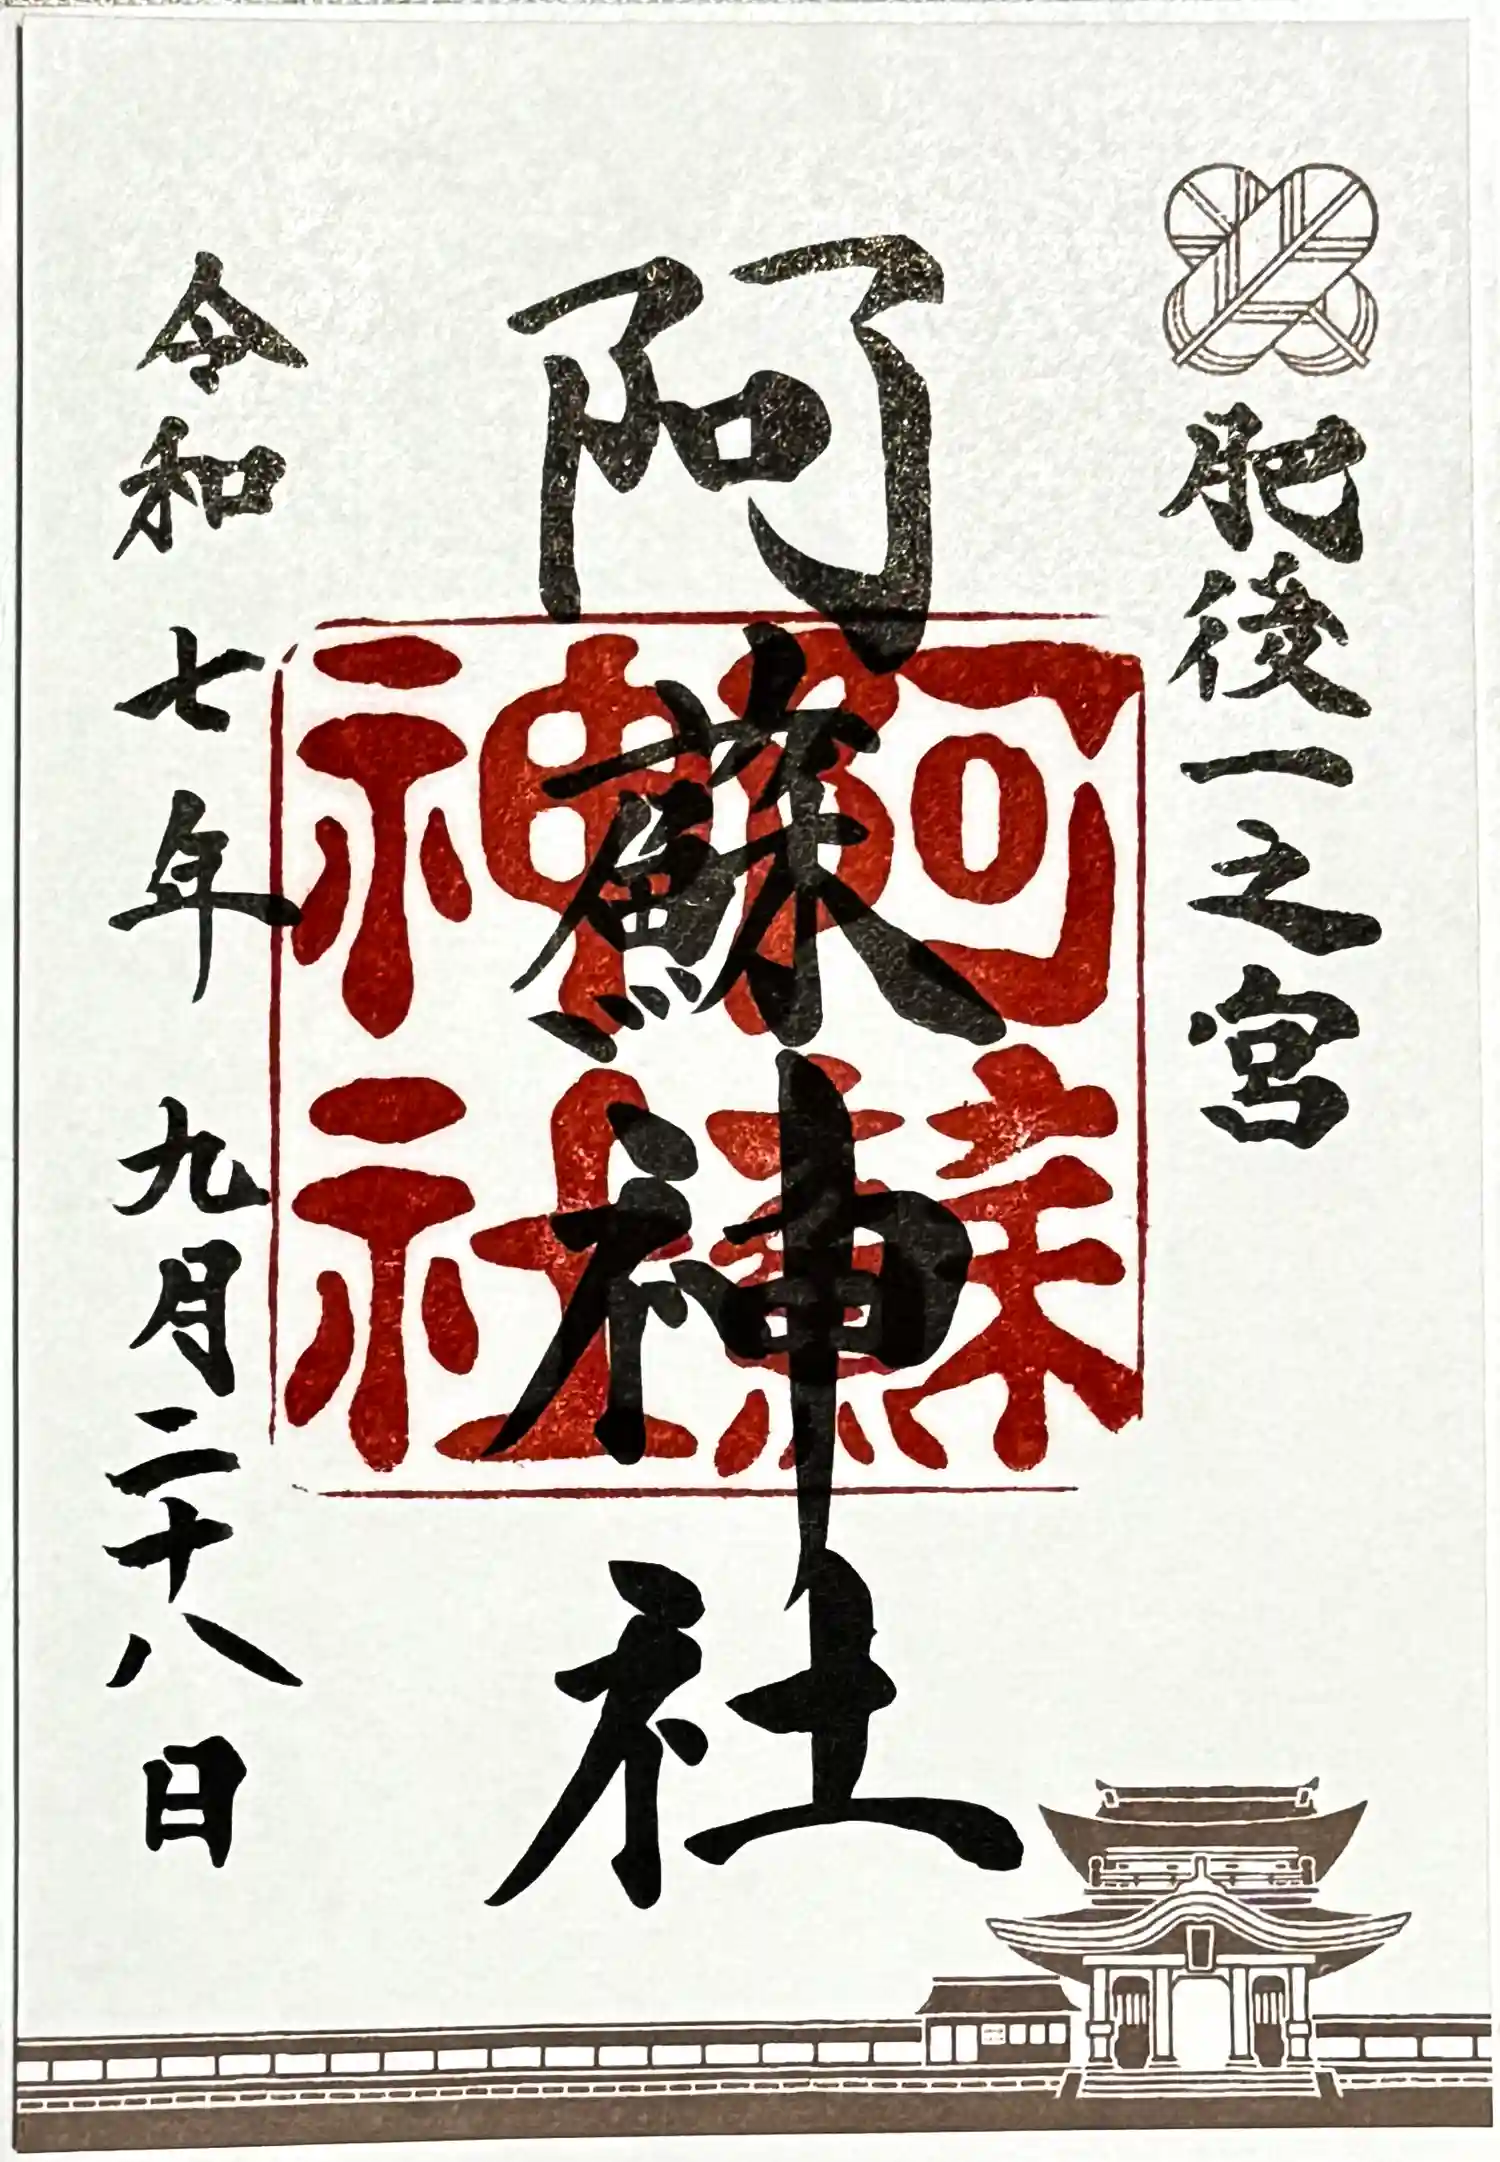 肥後一之宮
阿蘇神社
阿蘇神社
令和七年九月二十八日